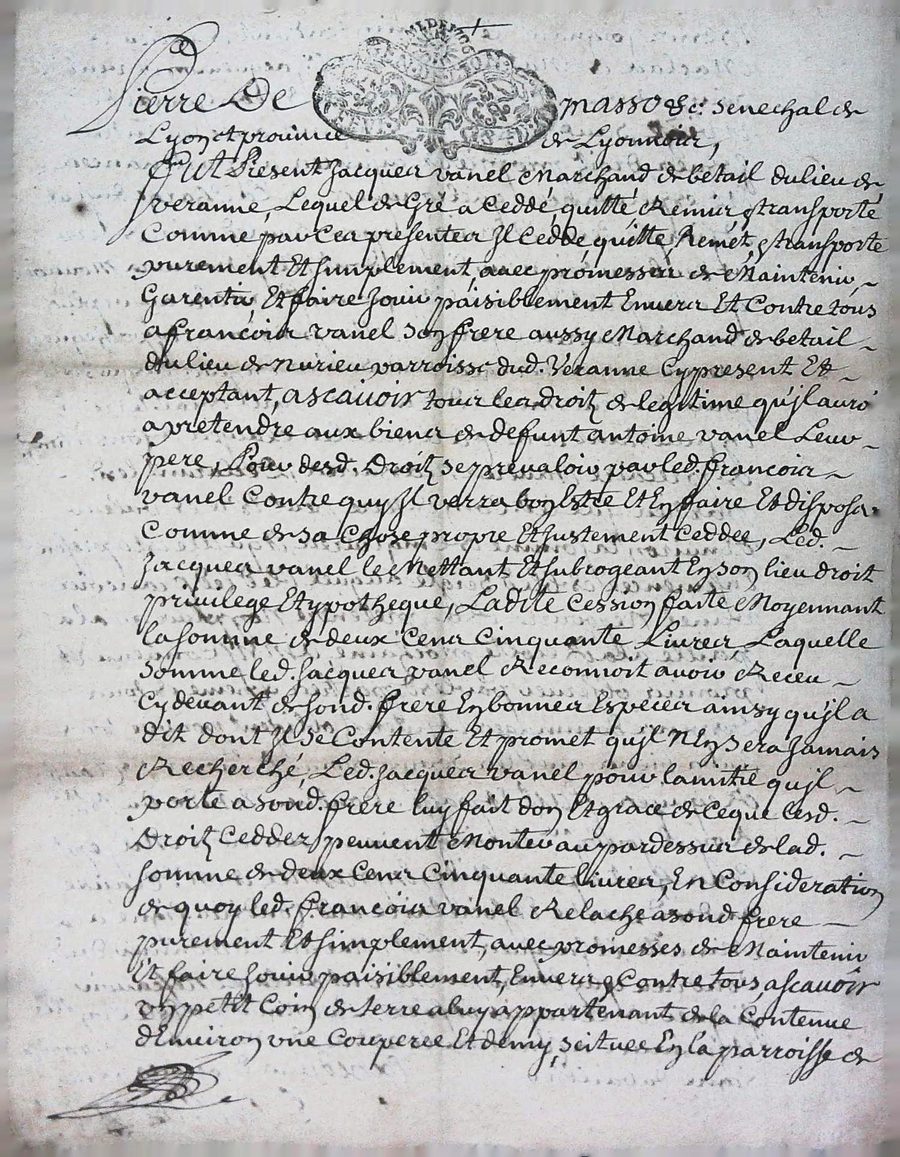 Pierre De masso &c. senechal de
Lyon et province de Lyonnois,
Fut Present Jacques vanel Marchand de betail du lieu de
veranne, Lequel de Gré a Ceddé, quitté Remis, & transporté
Comme par Ces presentes Il Cedde quitte, Remet, & transporte
purement Et simplement, avec promesses de Maintenir
Garentir, Et faire Jouir paisiblement Envers Et Contre tous
a françois vanel son frere aussy Marchand de betail
du lieu de Nurieu parroisse dud. Veranne Cy present Et
acceptant, ascavoir tous les droitz de legitime qu'jl auro
a pretendre aux biens de defunt antoine vanel Leur
pere, Pour desd. Droitz se prevaloir par led. françois
vanel Contre quy Il verra bon Estre Et En faire Et disposer
Comme de sa Chose propre Et Justement Ceddee, Led.
Jacques vanel le Mettant Et subrogeant En son lieu droit
privilege Et ypotheque, Ladite Cession faite Moyennant
la somme de deux Cens Cinquante Livres Laquelle
somme led. Jacques vanel Reconnoit avoir Receu
Cy devant de sond. frere En bonnes Especes ainsy qu'jl a
dit dont Il se Contente Et promet qu'jl N'En sera Jamais
Recherché, Led. Jacques vanel pour lamitié qu'jl
porte a sond. frere luy fait don Et grace de Ceque Cesd.
Droitz Ceddes peuvent Monter au pardessus de lad.
somme de deux Cens Cinquante livres, En Consideration
de quoy led. françois vanel Relache a sond frere
purement Et simplement, avec promesses de Maintenir
Et faire Jouir paisiblement, Envers & Contre tous, ascavoir
vn petit Coin de terre a luy appartenant de la Contenue
d'Environ vne Couperee Et demy, scituee En la parroisse de